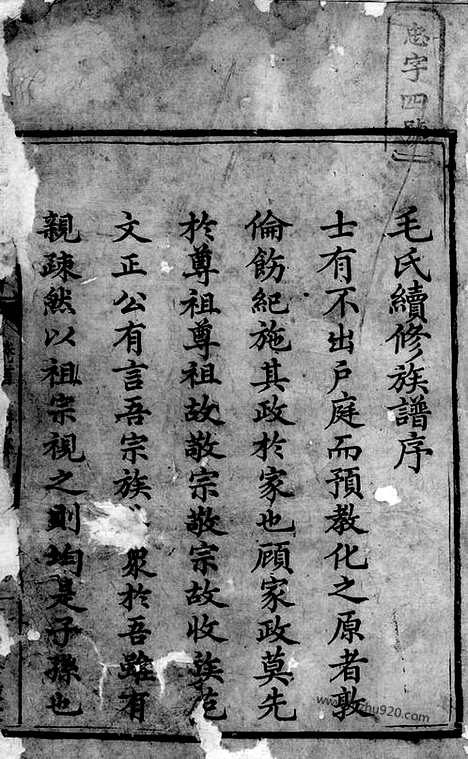 忠字四號
毛氏續修族譜序
士有不出戶庭而預教化之原者敦
倫飭紀施其政於家也顧家政莫先
於尊祖尊祖故敬宗敬宗故收族范
文正公有言吾宗族衆於吾雖有
親疎然以祖宗視之則均是子孫也